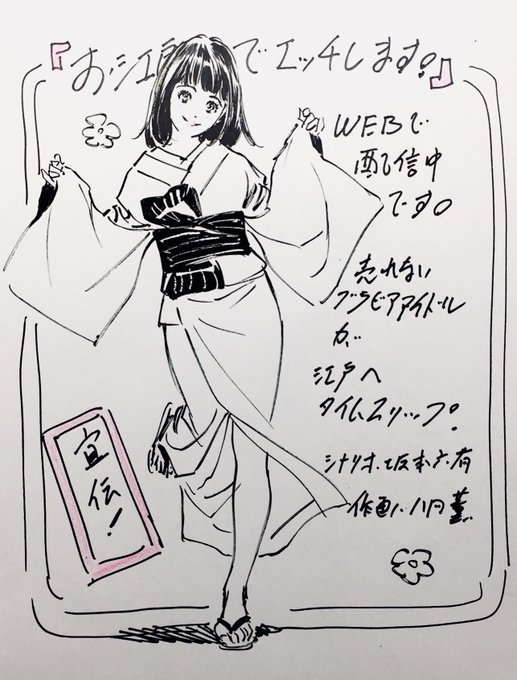 『お江戸でエッチします!』
WEBで
配信中
です。
売れない
グラビアアイドル
が、
江戸へ
タイムスリップ!
シナリオ、坂本六有
作画、八月薫
宣伝!